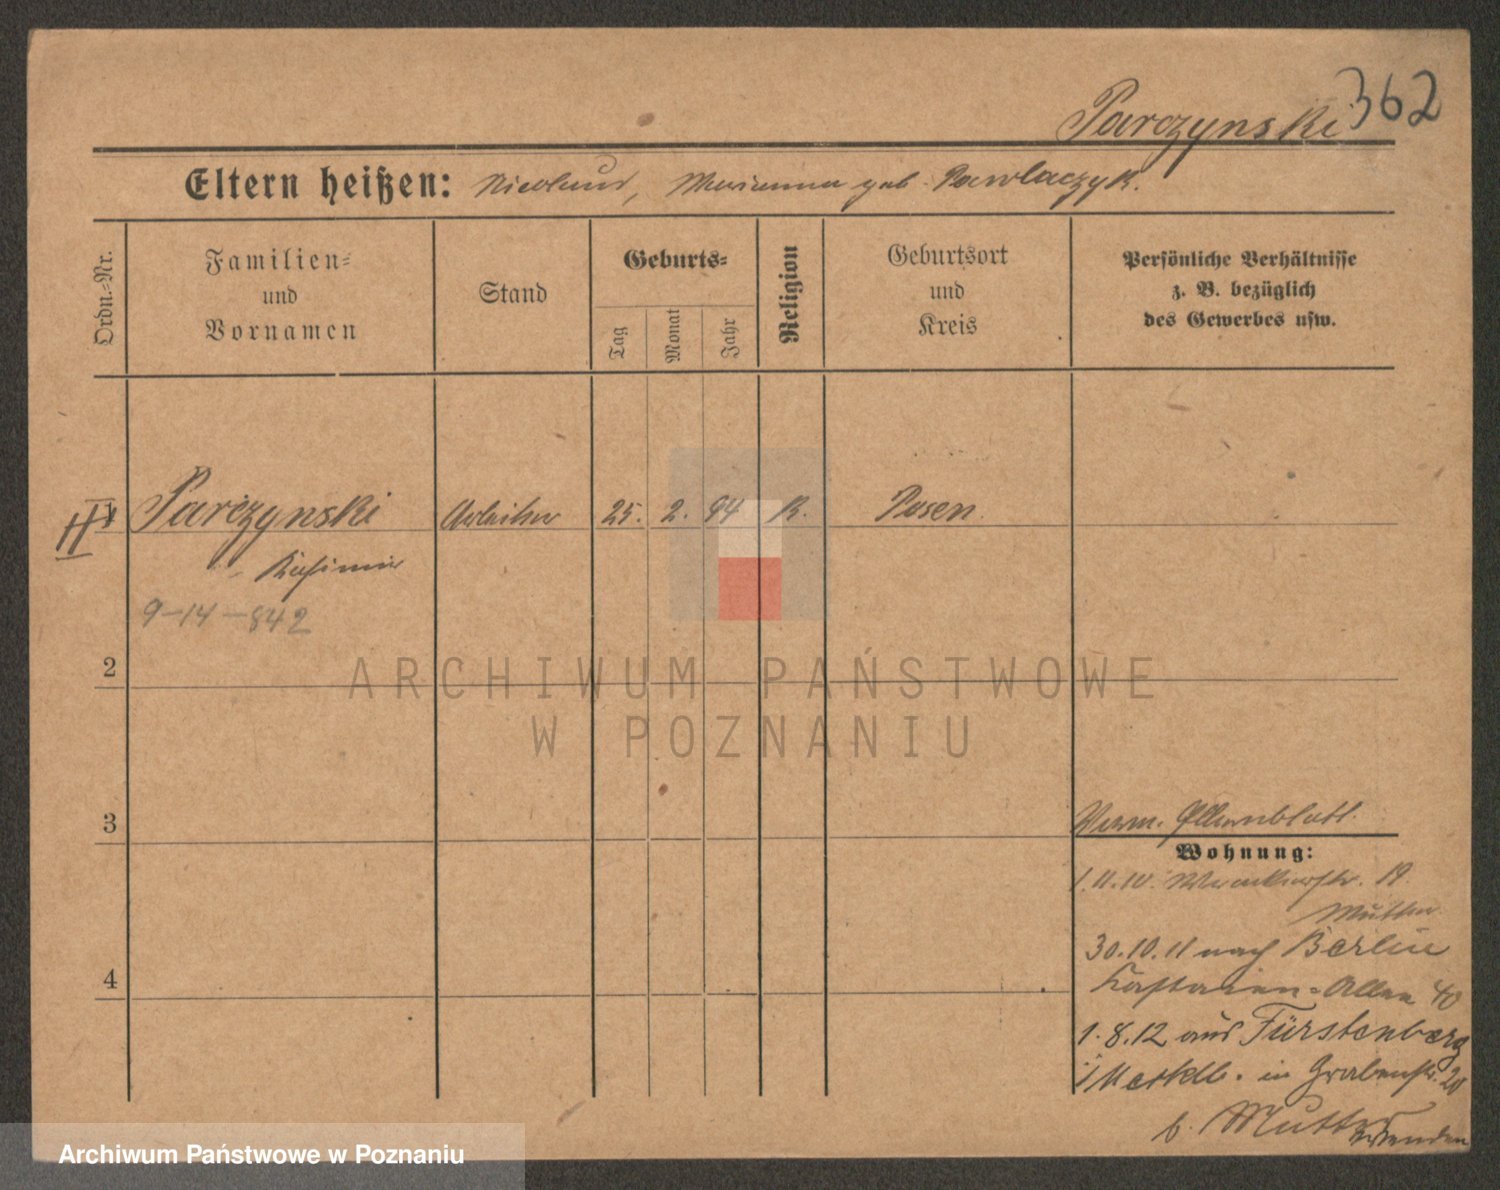 362
Parczynski
Eltern heißen: Nicolaus, Marianna geb. Pawlaczyk.
Ordn.=Nr.
Familien=
und
Vornamen
Stand
Geburts=
Tag
Monat
Jahr
Religion
Geburtsort
und
Kreis
Persönliche Verhältnisse
z. B. bezüglich
des Gewerbes usw.
Parczynski Arbeiter 25. 2. 94 K. Posen.
Kasimir
9-14-842
2
3
4
Verm. Elternblatt.
Wohnung:
1.11.10. 19.
Mutter
30.10.11 nach Berlin
Kastanien=Allee 40
1.8.12 aus Fürstenberg
i/Mecklb. in Grabenstr. 20
b. Mutter
wenden
ARCHIWUM PAŃSTWOWE
W POZNANIU
Archiwum Państwowe w Poznaniu